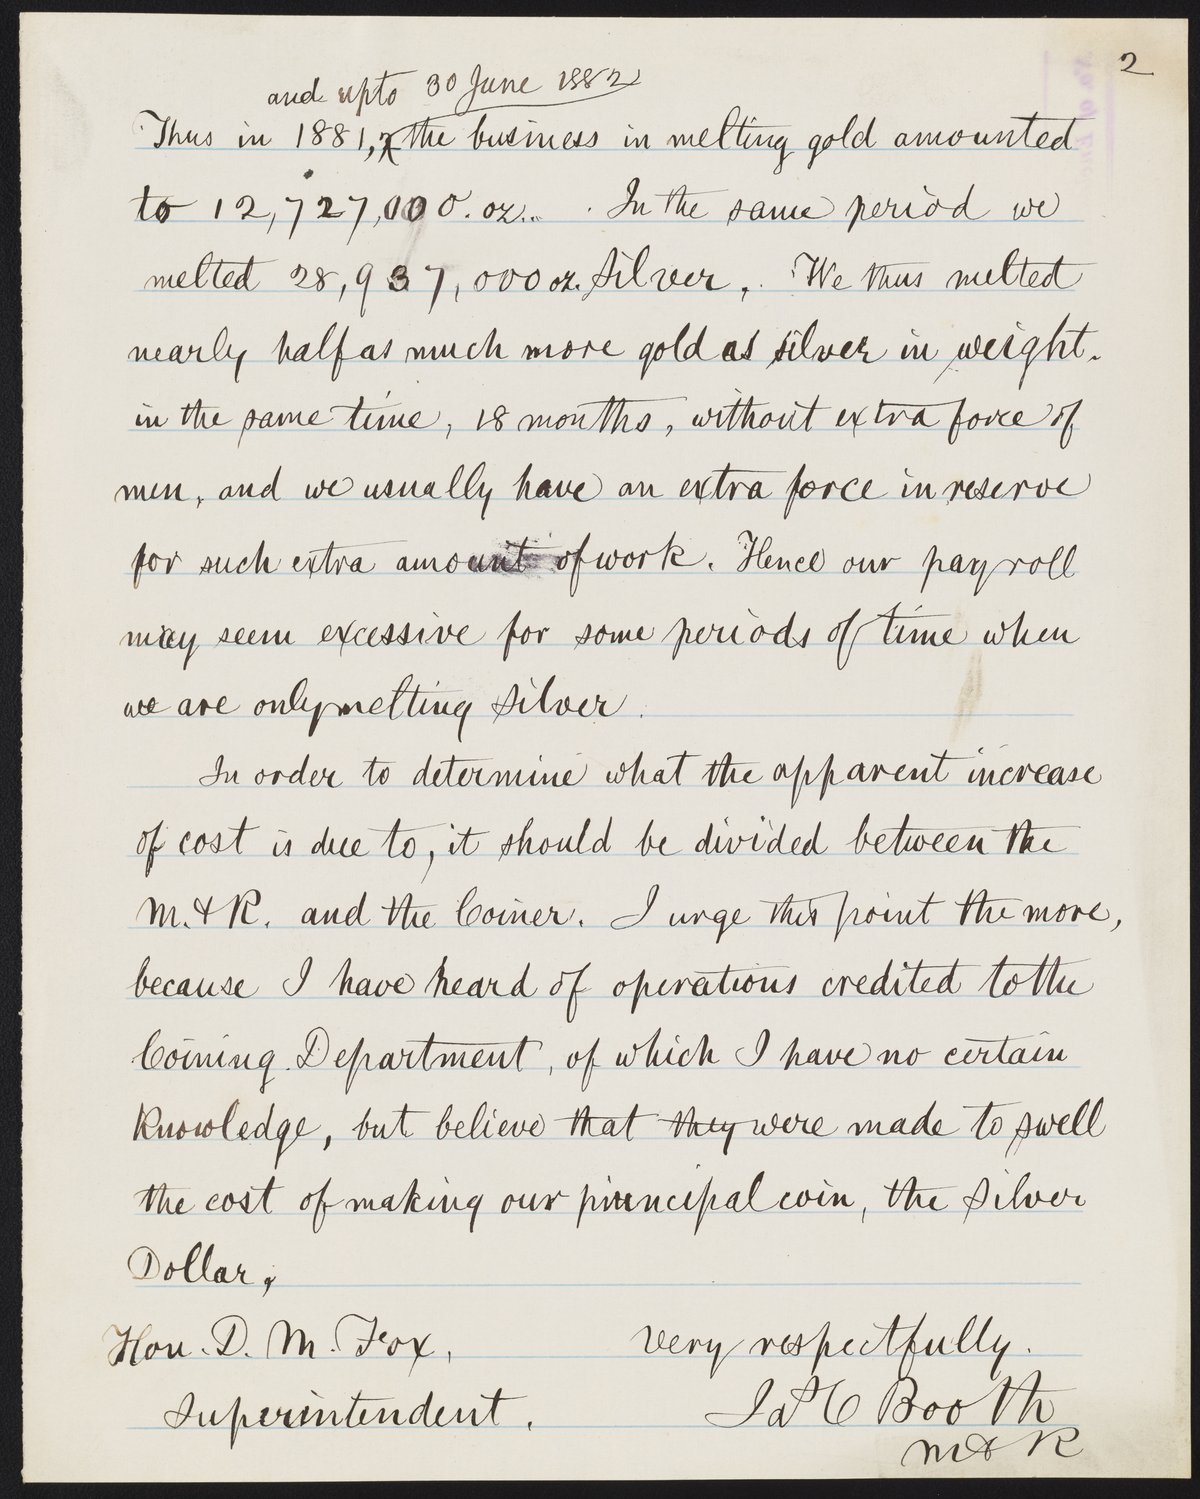 2
and upto 30 June 1882
Thus in 1881, the business in melting gold amounted
to 12,727,000. oz. In the same period we
melted 28,937,000 oz. Silver. We thus melted
nearly half as much more gold as silver in weight.
in the same time, 18 months, without extra force of
men, and we usually have an extra force in reserve
for such extra amount of work. Hence our pay roll
may seem excessive for some periods of time when
we are only melting Silver.
In order to determine what the apparent increase
of cost is due to, it should be divided between the
M. & R. and the Coiner. I urge this point the more,
because I have heard of operations credited to the
Coining Department, of which I have no certain
Knowledge, but believe that they were made to swell
the cost of making our principal coin, the Silver
Dollar.
Hon. D. M. Fox, Very respectfully.
Superintendent. Jas C Booth
M & R